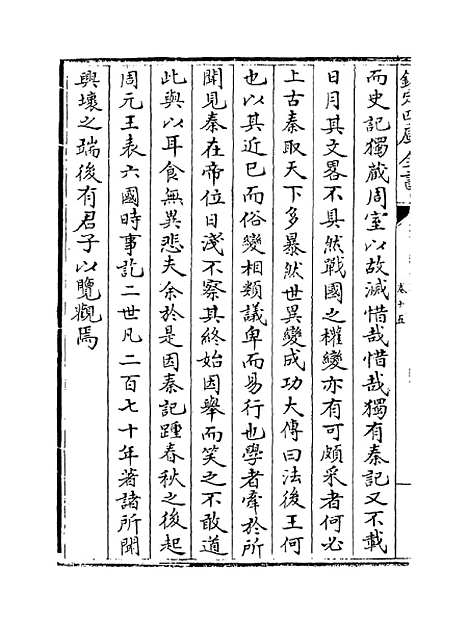 欽定四庫全書
卷十五
而史記獨蔵周室以故滅惜哉惜哉獨有秦記又不載
日月其文畧不具然戰國之權變亦有可頗采者何必
上古秦取天下多暴然世異變成功大傳曰法後王何
也以其近已而俗變相類議卑而易行也學者牽於所
聞見秦在帝位日淺不察其終始因舉而笑之不敢道
此與以耳食無異悲夫余於是因秦記踵春秋之後起
周元王表六國時事訖二世凡二百七十年著諸所聞
興壞之端後有君子以覽觀焉